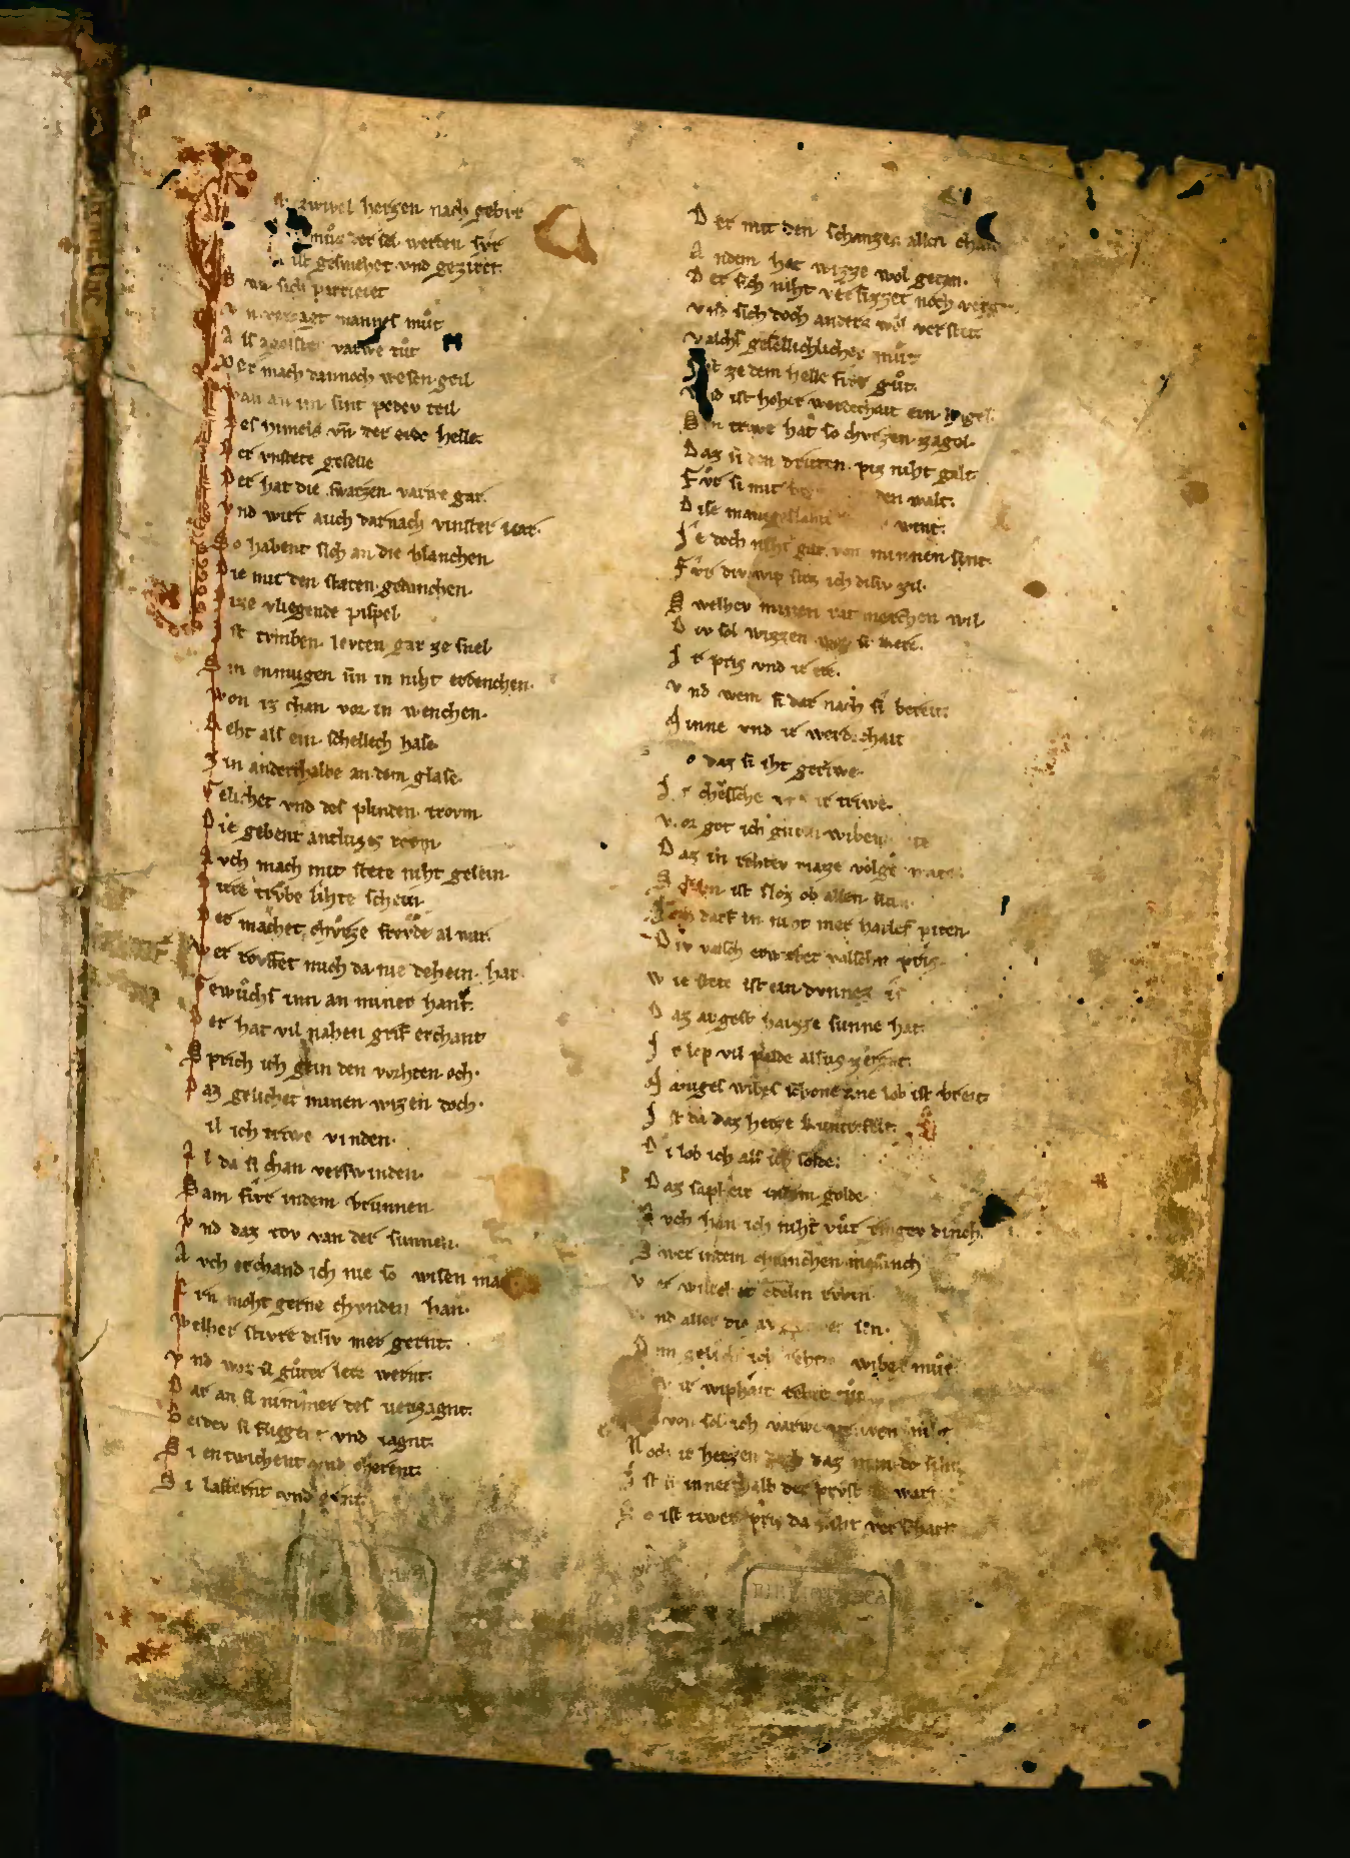 zwivel herzen nach gebvr
muͦz der sel werden svr
ist gesmehet vnd geziret
Swa sich parrieret
Vnverzagt mannes muͦt
Als agelster varwe tuͦt
Der mach dannoch wesen geil
wan an im sint peder teil
Des himels vn̄ der erde helle
Der vnstete geselle
Der hat die swarzen varwe gar
Vnd wirt auch darnach vinster var
So habent sich an die blanchen
Die mit den staten gedanchen
Dize vliegende pispel
Ist tvmben levten gar ze snel
Sin enmugen sin in niht erdenchen
Won iz chan vor in wenchen
Reht als ein schellech hase
Zin anderthalbe an dem glase
Gelichet vnd des plinden trovm
Die gebent antluzzes rovm
Auch mach mit stete niht gesein
Dirre trvbe lihte schein
Der machet chvrze frovde al war
Wer rovffet mich da nie dehein har
Gewuͦchs inn an miner hant
Der hat vil nahen grif erchant
Sprich ich gein den vorhten och
Daz gelichet minen wizen doch
il ich triwe vinden
Al da si chan verswinden
Sam fivr in dem brunnen
Vnd daz tov van der sunnen
Auch erchand ich nie so wisen ma
Ern moht gerne chvnden han
Welher stivre disiv mer gernt
Vnd woz si guͦter lere wernt
Dar an si nimmer des verzagnt
Beidev si fliegent vnd iagnt
Si entwichent vnd cherent
Si lasternt vnd erent
Der mit den schanzen allen chan
Andem hat wizze wol getan
Der sich niht versizzet noch verget
Vnd sich doch anders wol verstet
Valchs gesellichlicher muͦt
Ist ze dem helle fivr guͦt
Vnd ist hoher werdechait ein hagel
Sin triwe hat so chvrzen zagel
Daz si den dritten piz niht galt
Fuͦr si mit den walt
Dise manigeslaht wint
Ie doch niht gar von minnen sint
Fvr div wip stoz ich disiv zil
Swelhev minen rat merchen wil
Div sol wizzen war si chere
Ir pris vnd ir ere
Vnd wem si dar nach si bereit
Minne vnd ir werdechait
o daz si iht gerivwe
Ir chevsche vnd ir triwe
Vor got ich guten wiben
Daz in rehter maze volge
Scham ist sloz ob allen siten
Ich darf in niht mer hailes piten
Div valsch erwirbet valschen pris
Wie stete ist ein dvnnez is
Daz avgest haizze sunne hat
Ir lop vil palde alsus zergat
Maniges wibes schone ane lob ist breit
Ist da daz herze kunterfeit
Di lob ich als ich solde
Daz sapheir in dem golde
Auch han ich niht vuͦr ringev dinch
Swer in dem chvnchen missinch
Ver wirket edelin rvbin
Vnd aller die aventiver sin
Dem gelich ich rehten wibes muͦt
ir wiphait rehte tuͦt
von sol ich varwe pruven niht
Noch ir herzen dach daz man do siht
Ist si innerhalb der prvst bewart
So ist iwer pris da niht verschart